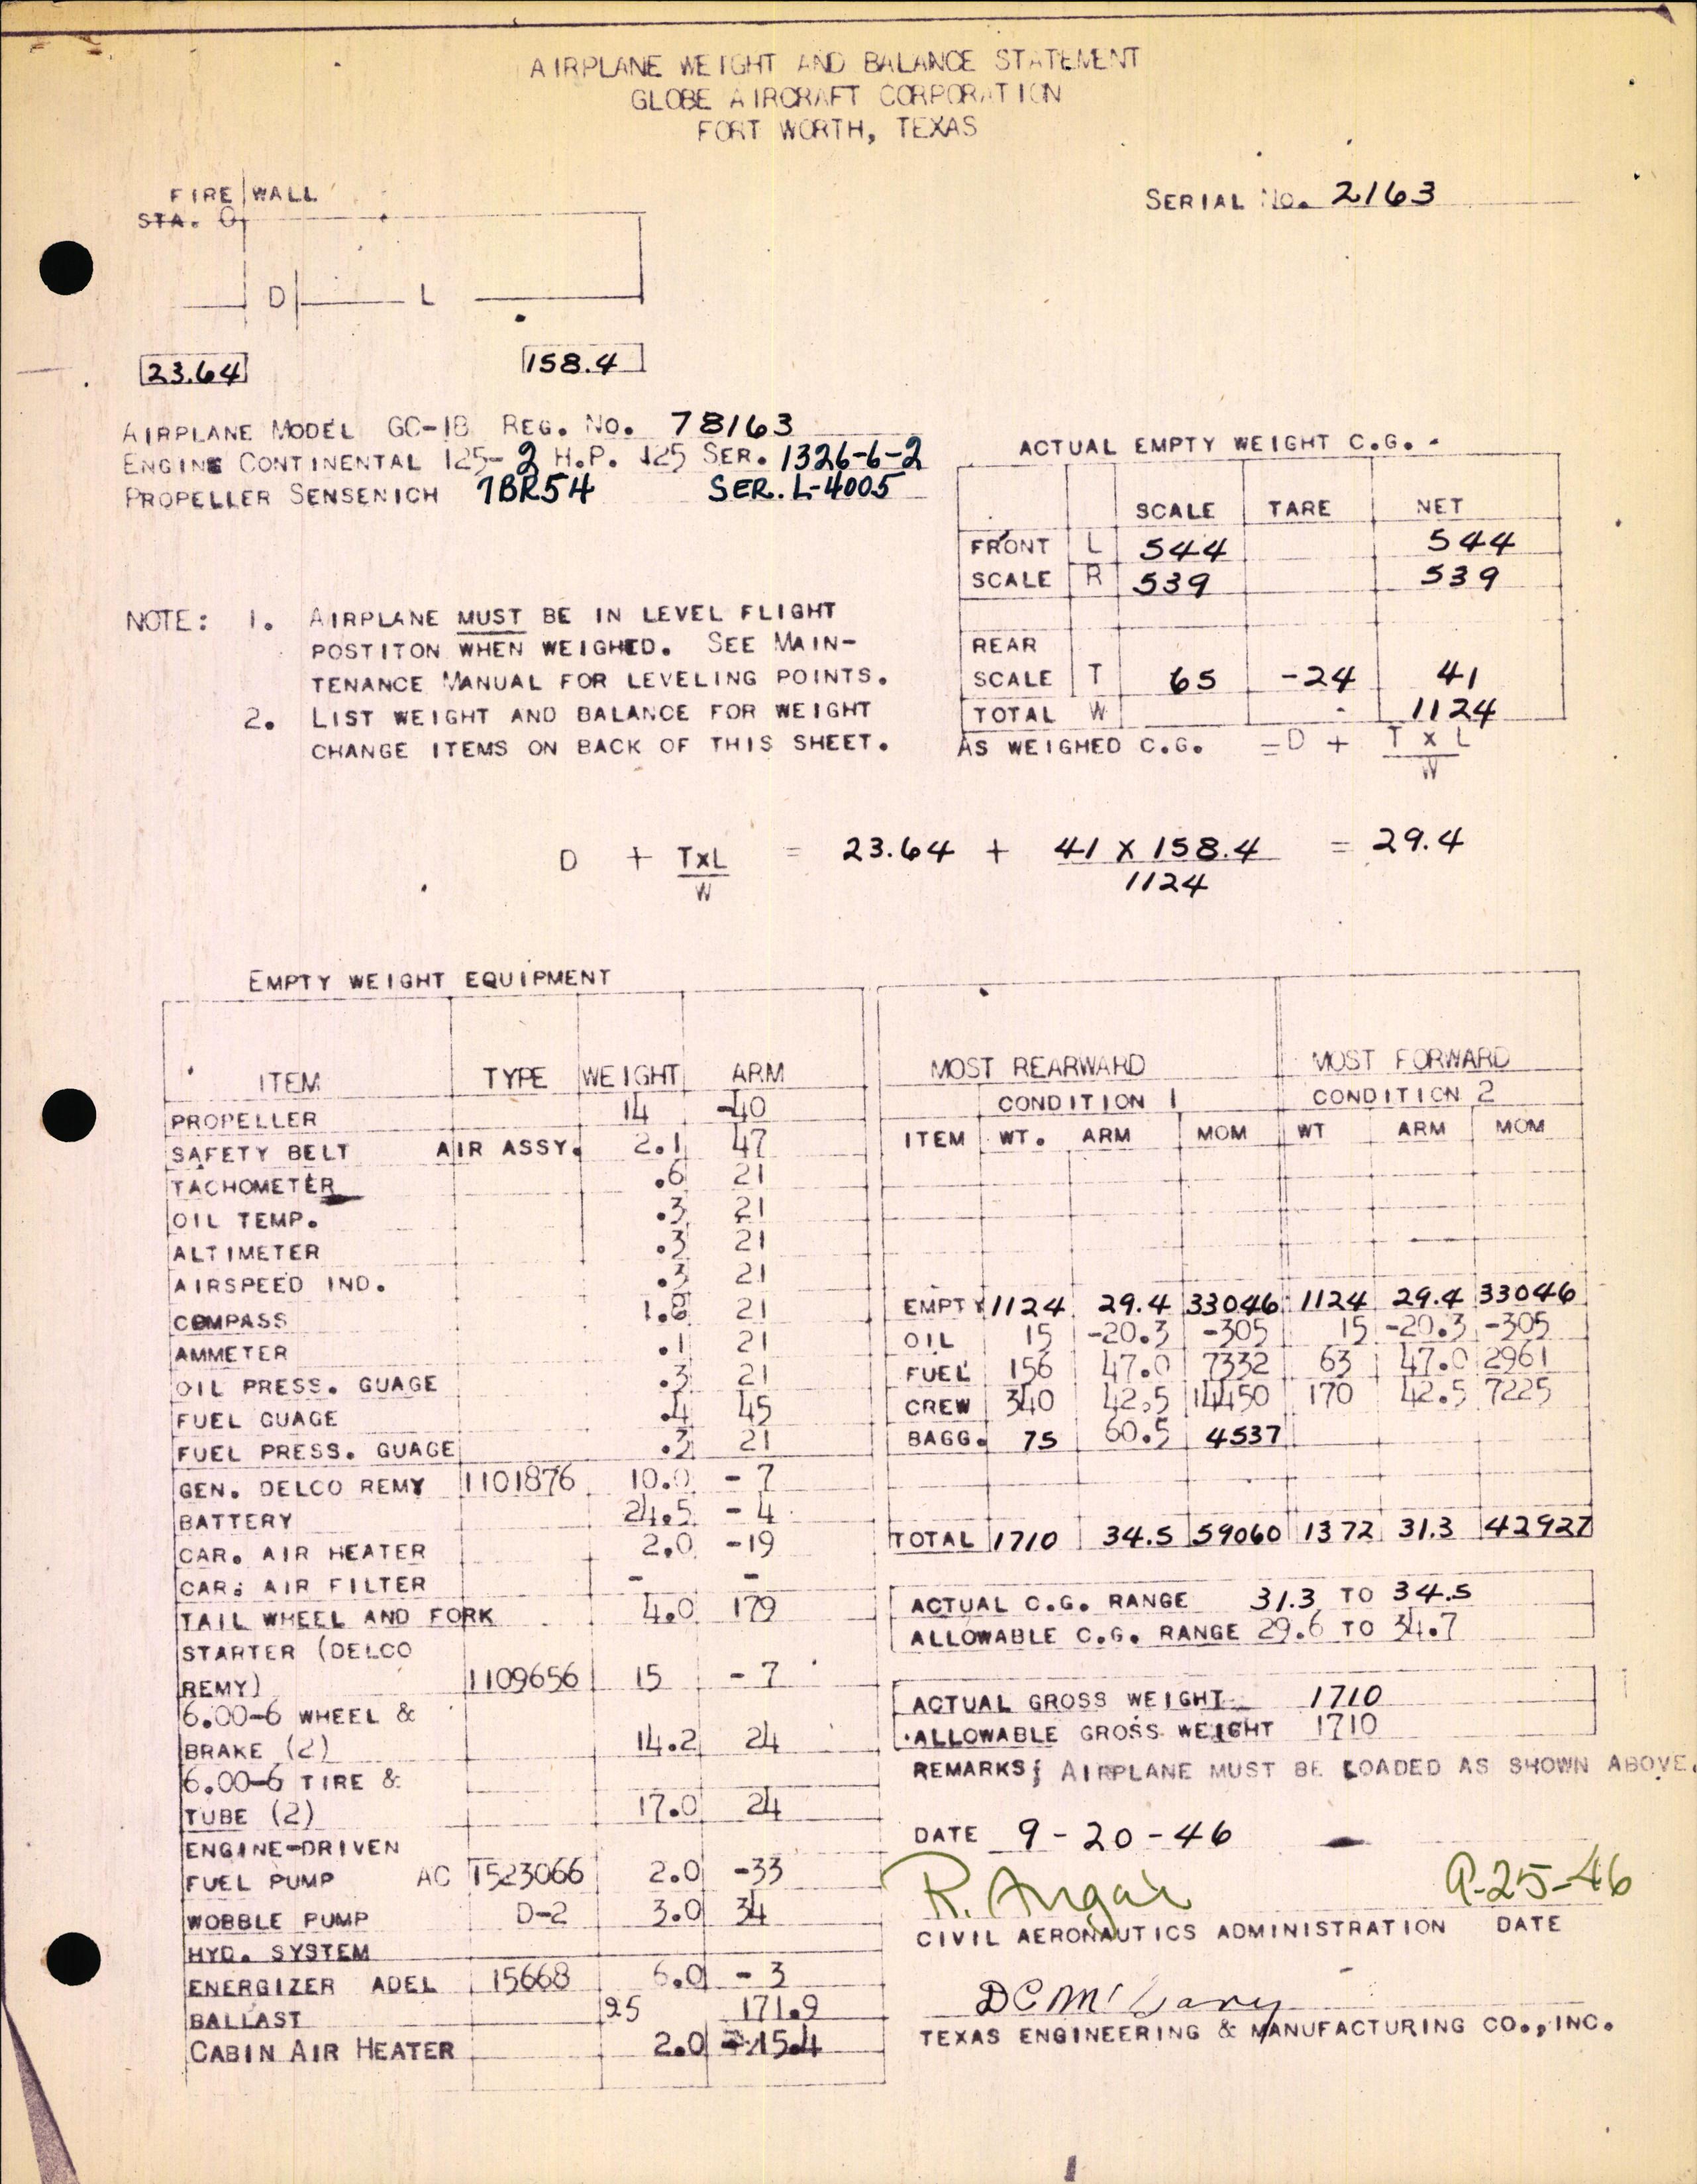 AIRPLANE WEIGHT AND BALANCE STATEMENT
GLOBE AIRCRAFT CORPORATION
FORT WORTH, TEXAS
FIRE WALL
STA. 0
SERIAL No. 2163
D L
23.64 158.4
AIRPLANE MODEL GC-1B REG. NO. 78163
ENGINE CONTINENTAL 125-2 H.P. 125 SER. 1326-6-2
PROPELLER SENSENICH 7BR54 SER. L-4005
ACTUAL EMPTY WEIGHT C.G. -
SCALE TARE NET
FRONT L 544 544
SCALE R 539 539
REAR
SCALE T 65 -24 41
TOTAL W 1124
AS WEIGHED C.G. = D + T X L
W
NOTE: 1. AIRPLANE MUST BE IN LEVEL FLIGHT
POSTITON WHEN WEIGHED. SEE MAIN-
TENANCE MANUAL FOR LEVELING POINTS.
2. LIST WEIGHT AND BALANCE FOR WEIGHT
CHANGE ITEMS ON BACK OF THIS SHEET.
D + TxL = 23.64 + 41 X 158.4 = 29.4
W 1124
EMPTY WEIGHT EQUIPMENT
ITEM TYPE WEIGHT ARM
PROPELLER 14 -40
SAFETY BELT AIR ASSY. 2.1 47
TACHOMETER .6 21
OIL TEMP. .3 21
ALTIMETER .3 21
AIRSPEED IND. .3 21
COMPASS 1.8 21
AMMETER .1 21
OIL PRESS. GUAGE .3 21
FUEL GUAGE .4 45
FUEL PRESS. GUAGE .3 21
GEN. DELCO REMY 1101876 10.0 - 7
BATTERY 24.5 - 4
CAR. AIR HEATER 2.0 -19
CAR. AIR FILTER - -
TAIL WHEEL AND FORK 4.0 179
STARTER (DELCO
REMY) 1109656 15 - 7
6.00-6 WHEEL &
BRAKE (2) 14.2 24
6.00-6 TIRE &
TUBE (2) 17.0 24
ENGINE-DRIVEN
FUEL PUMP AC 1523066 2.0 -33
WOBBLE PUMP D-2 3.0 34
HYD. SYSTEM
ENERGIZER ADEL 15668 6.0 - 3
BALLAST 25 171.9
CABIN AIR HEATER 2.0 -15.4
MOST REARWARD MOST FORWARD
CONDITION 1 CONDITION 2
ITEM WT. ARM MOM WT ARM MOM
EMPTY 1124 29.4 33046 1124 29.4 33046
OIL 15 -20.3 -305 15 -20.3 -305
FUEL 156 47.0 7332 63 47.0 2961
CREW 340 42.5 14450 170 42.5 7225
BAGG. 75 60.5 4537
TOTAL 1710 34.5 59060 1372 31.3 42927
ACTUAL C.G. RANGE 31.3 TO 34.5
ALLOWABLE C.G. RANGE 29.6 TO 34.7
ACTUAL GROSS WEIGHT 1710
ALLOWABLE GROSS WEIGHT 1710
REMARKS; AIRPLANE MUST BE LOADED AS SHOWN ABOVE.
DATE 9-20-46
R. 9-25-46
CIVIL AERONAUTICS ADMINISTRATION DATE
DC
TEXAS ENGINEERING & MANUFACTURING CO., INC.
1